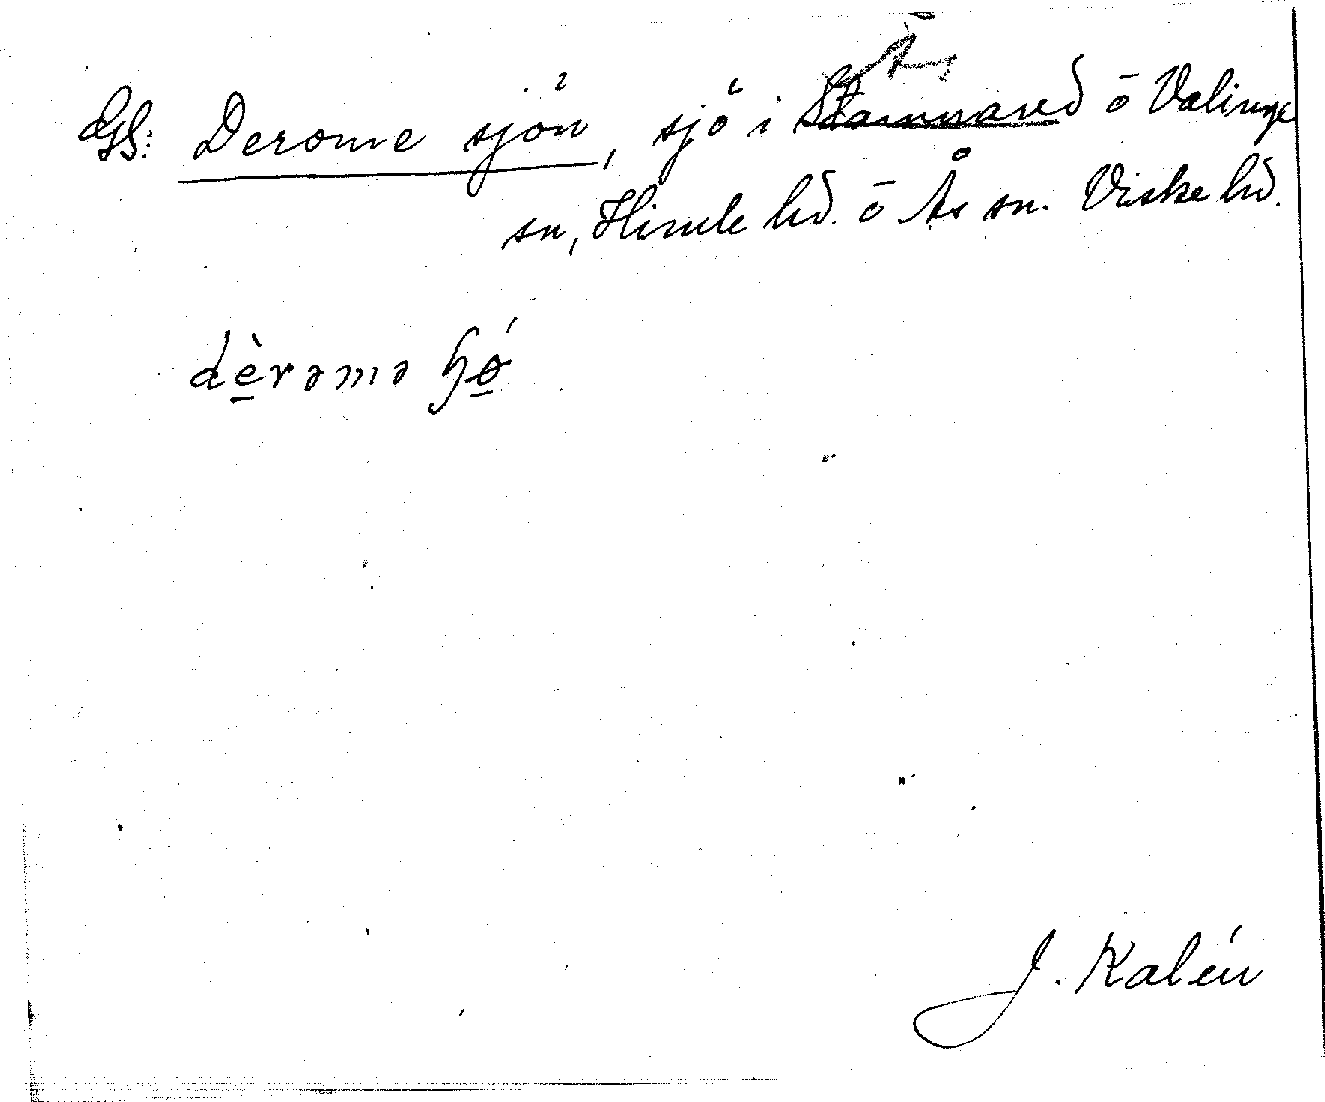 Ås
GS: Derome sjön, sjö i Stamnared ö Valinge
sn, Himle hd. ö Ås sn. Viske hd.
dèrəmə ɧǿ
J. Kalén